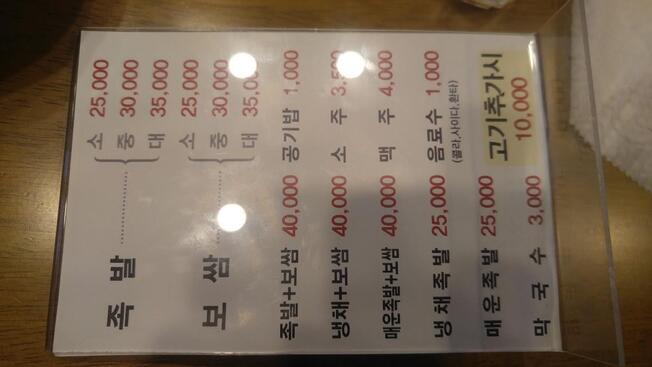 족발 ············ 소 25,000
중 30,000
대 35,000
보쌈 ············ 소 25,000
중 30,000
대 35,000
족발+보쌈 40,000 공기밥 1,000
냉채+보쌈 40,000 소주 3,500
매운족발+보쌈 40,000 맥주 4,000
냉채족발 25,000 음료수 1,000
(콜라,사이다,환타)
매운족발 25,000 고기추가시
10,000
막국수 3,000